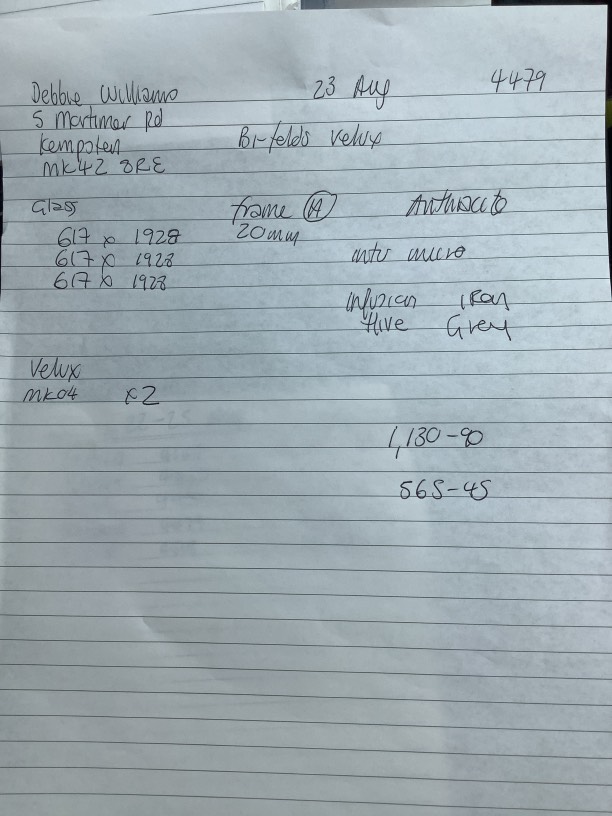 Debbie Williams 23 Aug 4479
5 Mortimer Rd
Kempston Bi-folds Velux
MK42 8RE
Glass frame (A) Anthracite
617 x 1928 20mm
617 x 1928 intu micro
617 x 1928
Infusion Iron
Hive Grey
Velux
MK04 x2
1,130-90
565-45